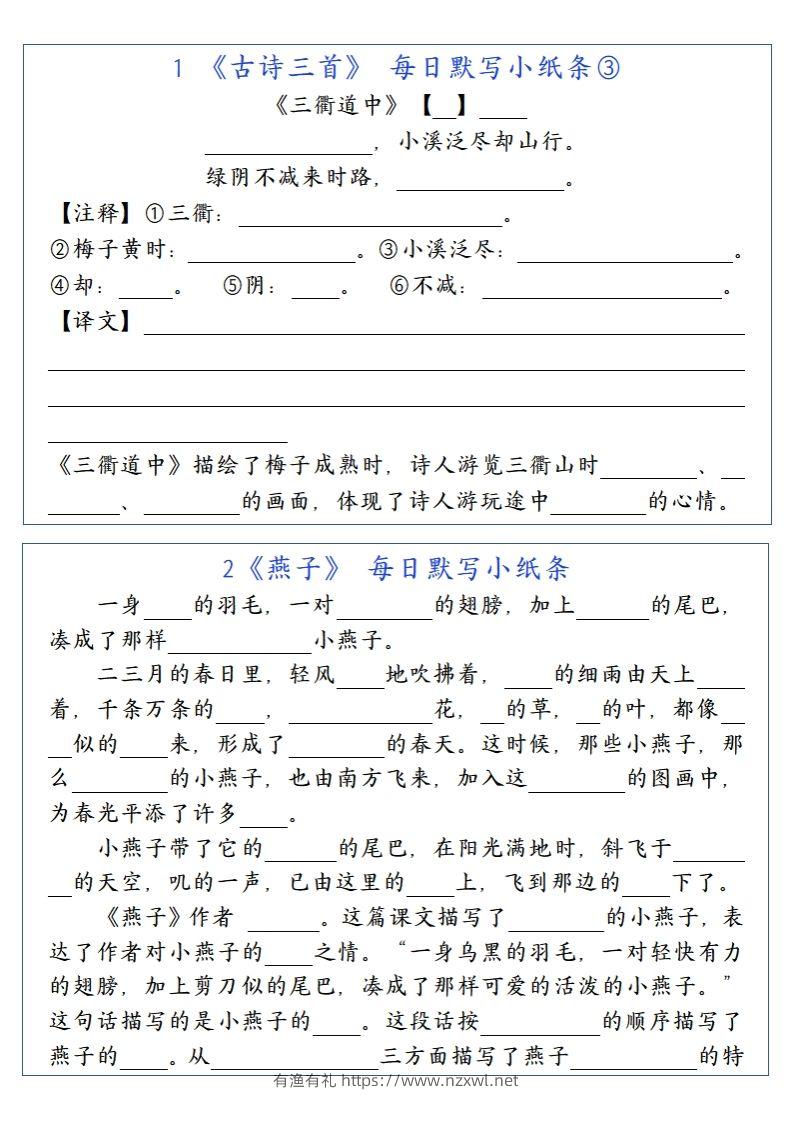 1 《古诗三首》 每日默写小纸条③
《三衢道中》【__】____
______________，小溪泛尽却山行。
绿阴不减来时路，______________。
【注释】①三衢：______________________。
②梅子黄时：______________。③小溪泛尽：__________________。
④却：____。 ⑤阴：____。 ⑥不减：____________________。
【译文】__________________________________________________
__________________________________________________________
__________________________________________________________
____________________
《三衢道中》描绘了梅子成熟时，诗人游览三衢山时________、__
______、________的画面，体现了诗人游玩途中________的心情。
2《燕子》 每日默写小纸条
一身____的羽毛，一对________的翅膀，加上______的尾巴，
凑成了那样____________小燕子。
二三月的春日里，轻风____地吹拂着，____的细雨由天上____
着，千条万条的____，____________花，__的草，__的叶，都像__
__似的____来，形成了________的春天。这时候，那些小燕子，那
么________的小燕子，也由南方飞来，加入这________的图画中，
为春光平添了许多____。
小燕子带了它的______的尾巴，在阳光满地时，斜飞于______
__的天空，叽的一声，已由这里的____上，飞到那边的____下了。
《燕子》作者 ______。这篇课文描写了________的小燕子，表
达了作者对小燕子的____之情。“一身乌黑的羽毛，一对轻快有力
的翅膀，加上剪刀似的尾巴，凑成了那样可爱的活泼的小燕子。”
这句话描写的是小燕子的____。这段话按__________的顺序描写了
燕子的____。从______________三方面描写了燕子__________的特
有渔有礼 https://www.nzxwl.net